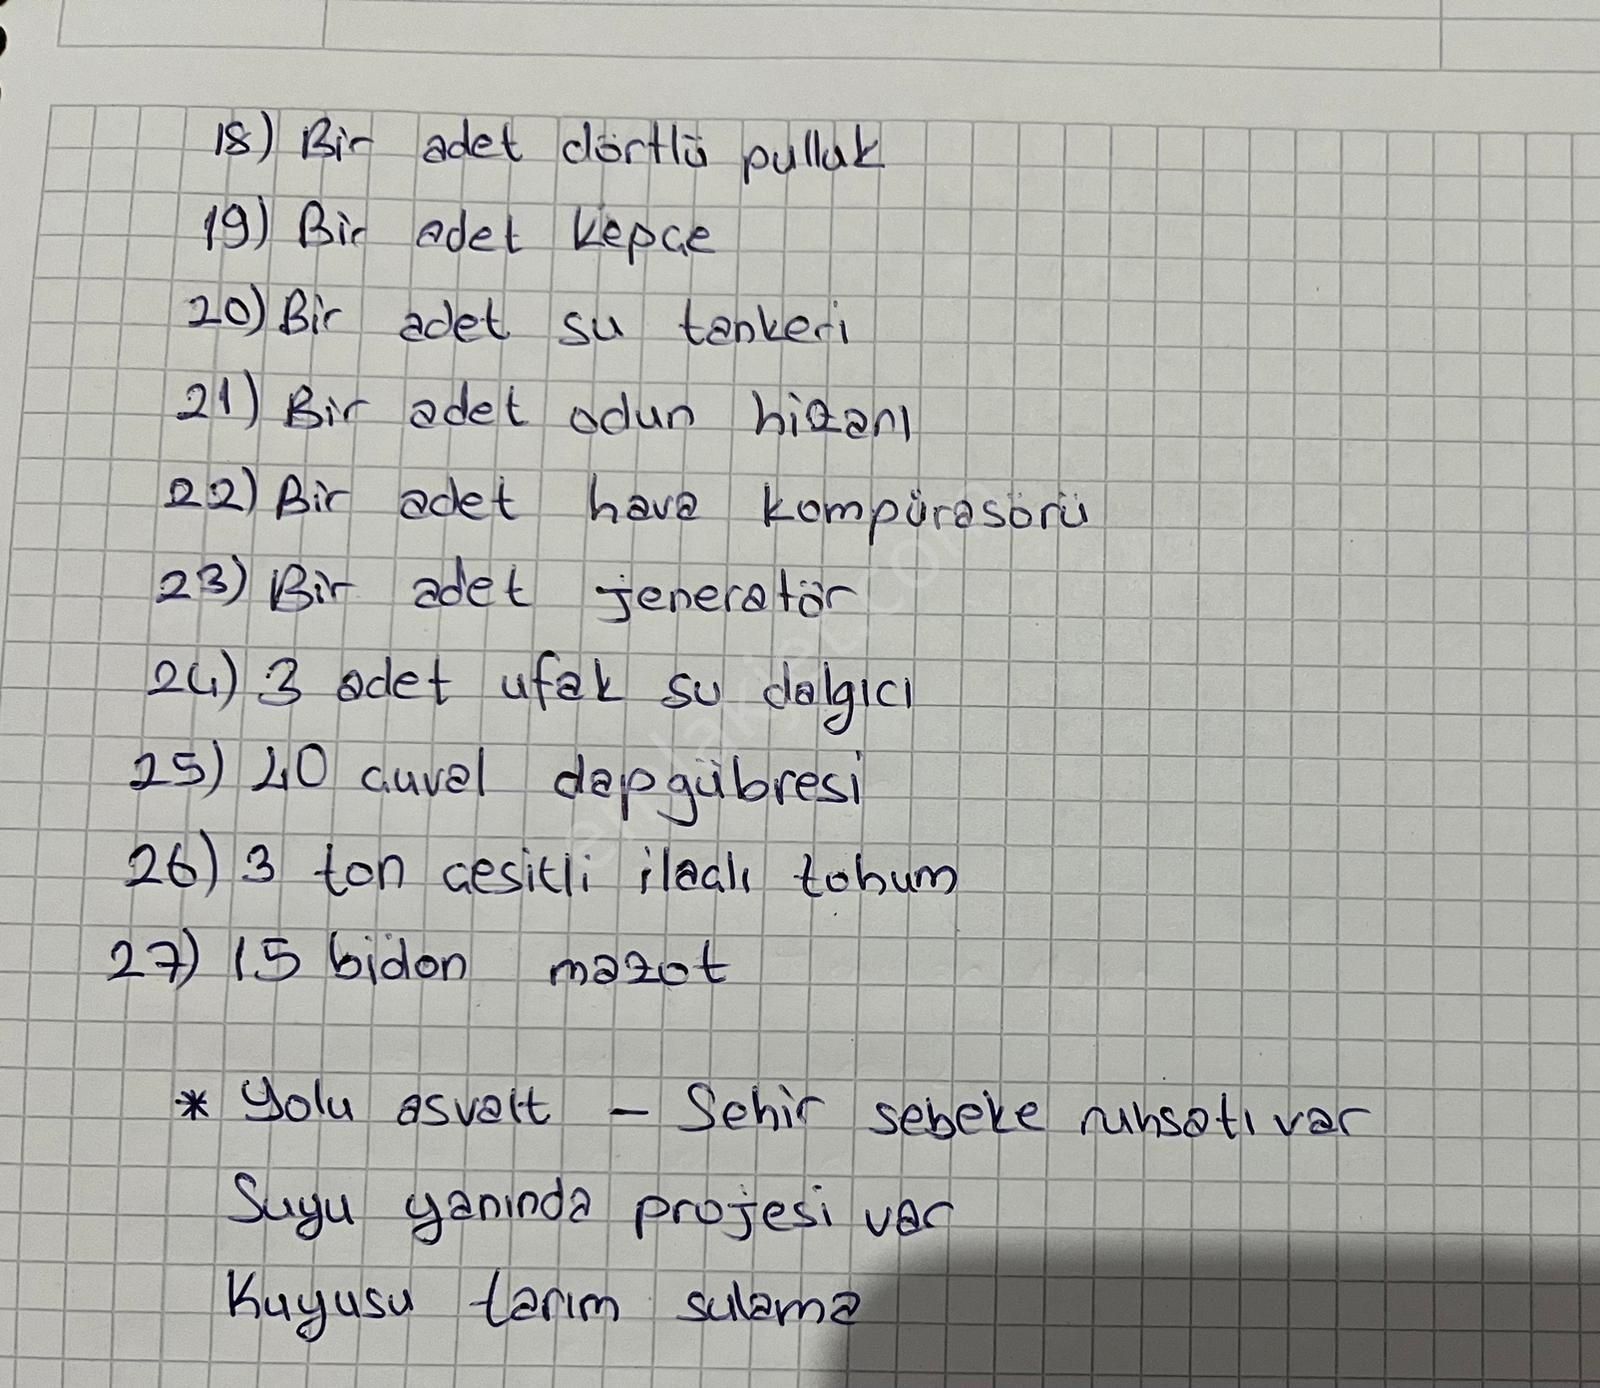 18) Bir adet dörtlü pulluk
19) Bir adet kepçe
20) Bir adet su tankeri
21) Bir adet odun hizanı
22) Bir adet hava kompürasörü
23) Bir adet jeneratör
24) 3 adet ufak su dalgıcı
25) 40 çuval dapgübresi
26) 3 ton çesitli ilaçlı tohum
27) 15 bidon mazot
* Yolu asvalt - Sehir sebeke ruhsatı var
Suyu yanında projesi var
Kuyusu tarım sulama
emlakjet.com